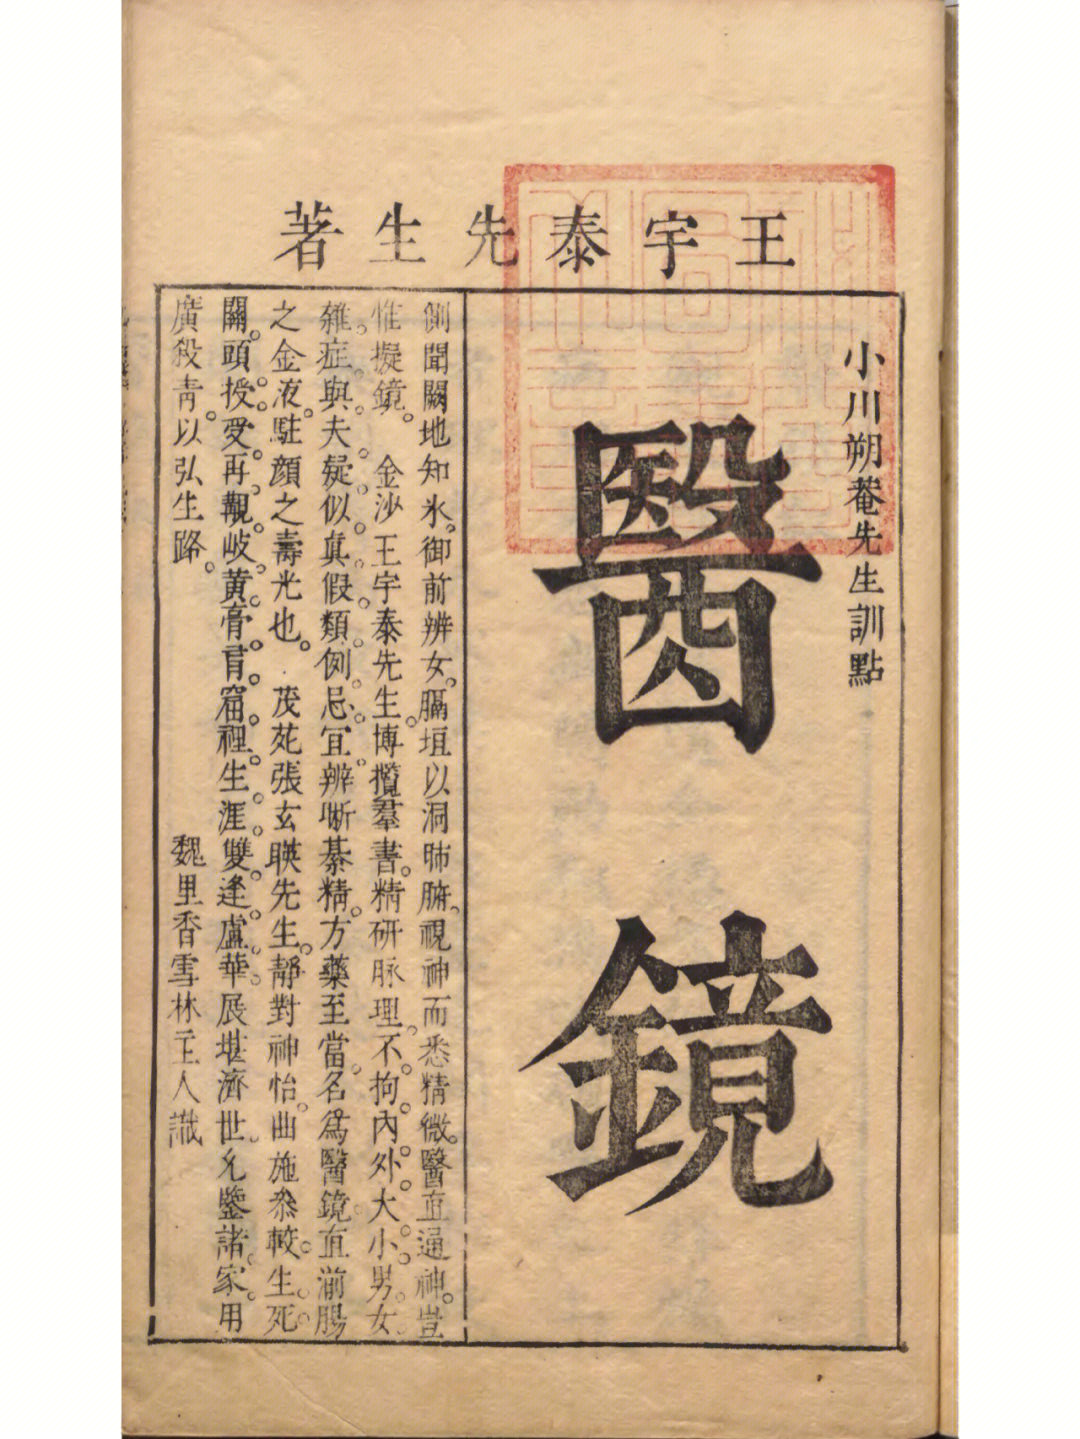 王宇泰先生著
小川朔菴先生訓點
醫鏡
側聞闕地知氷。御前辨女。膈垣以洞肺腑。視神而悉精微。醫直通神。豈
惟擬鏡。金沙王宇泰先生博攬羣書。精研脉理。不拘內外大小男女
雜症。與夫疑似真假類例。忌宜辨晰綦精。方藥至當。名爲醫鏡直湔腸
之金液。駐顏之壽光也。茂苑張玄暎先生。靜對神怡。曲施叅較。生死
關頭授受。再觀岐黄膏肓窟裡生涯。雙逢盧華。展堪濟世。允鑒諸家。用
廣殺青。以弘生路。
魏里香雪林主人識